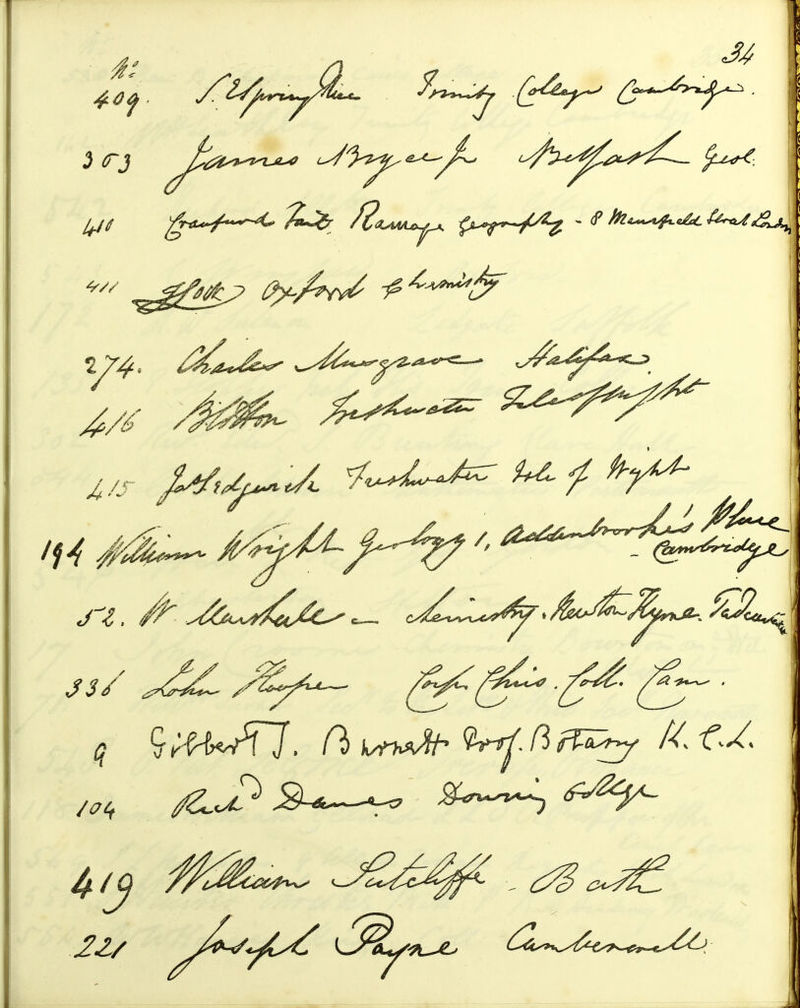 34
No
409. S. E. Spring Rice Trinity College Cambridge.
303 James Bryce Jr Belfast Geol:
410 Craufurd Tait Ramage Geography - 8 Mansfield Street London
411 Oxford Chemistry
274. Charles Musgrave Halifax
416 Freshwater Isle of Wight
415 Jas Sedgwick Freshwater Isle of Wight
194 William Wright Geology 1, Addenbrooke's Place
- Cambridge
52. W Marshall - chemistry. Newton Kyme. Tadcaster
336 John Hooper Corp. Chris. Coll. Cam.
9 Gilbert T. Burnett Prof. Botany K.C.L.
104 Richd Dawes Downing College
419 William Sutcliffe - Bath
221 Joseph Payne Camberwell.